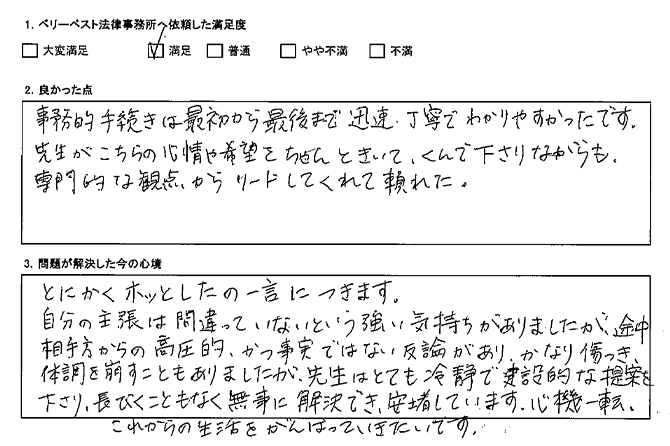 1. ベリーベスト法律事務所へ依頼した満足度
大変満足 満足 普通 やや不満 不満
2. 良かった点
事務的手続きは最初から最後まで迅速・丁寧でわかりやすかったです。
先生がこちらの心情や希望をちゃんときいて、くんで下さりながらも、
専門的な観点からリードしてくれて頼れた。
3. 問題が解決した今の心境
とにかくホッとしたの一言につきます。
自分の主張は間違っていないという強い気持ちがありましたが、途中
相手方からの高圧的、かつ事実ではない反論があり、かなり傷つき、
体調を崩すこともありましたが、先生はとても冷静で建設的な提案を
下さり、長びくこともなく無事に解決でき、安堵しています。心機一転、
これからの生活をがんばっていきたいです。